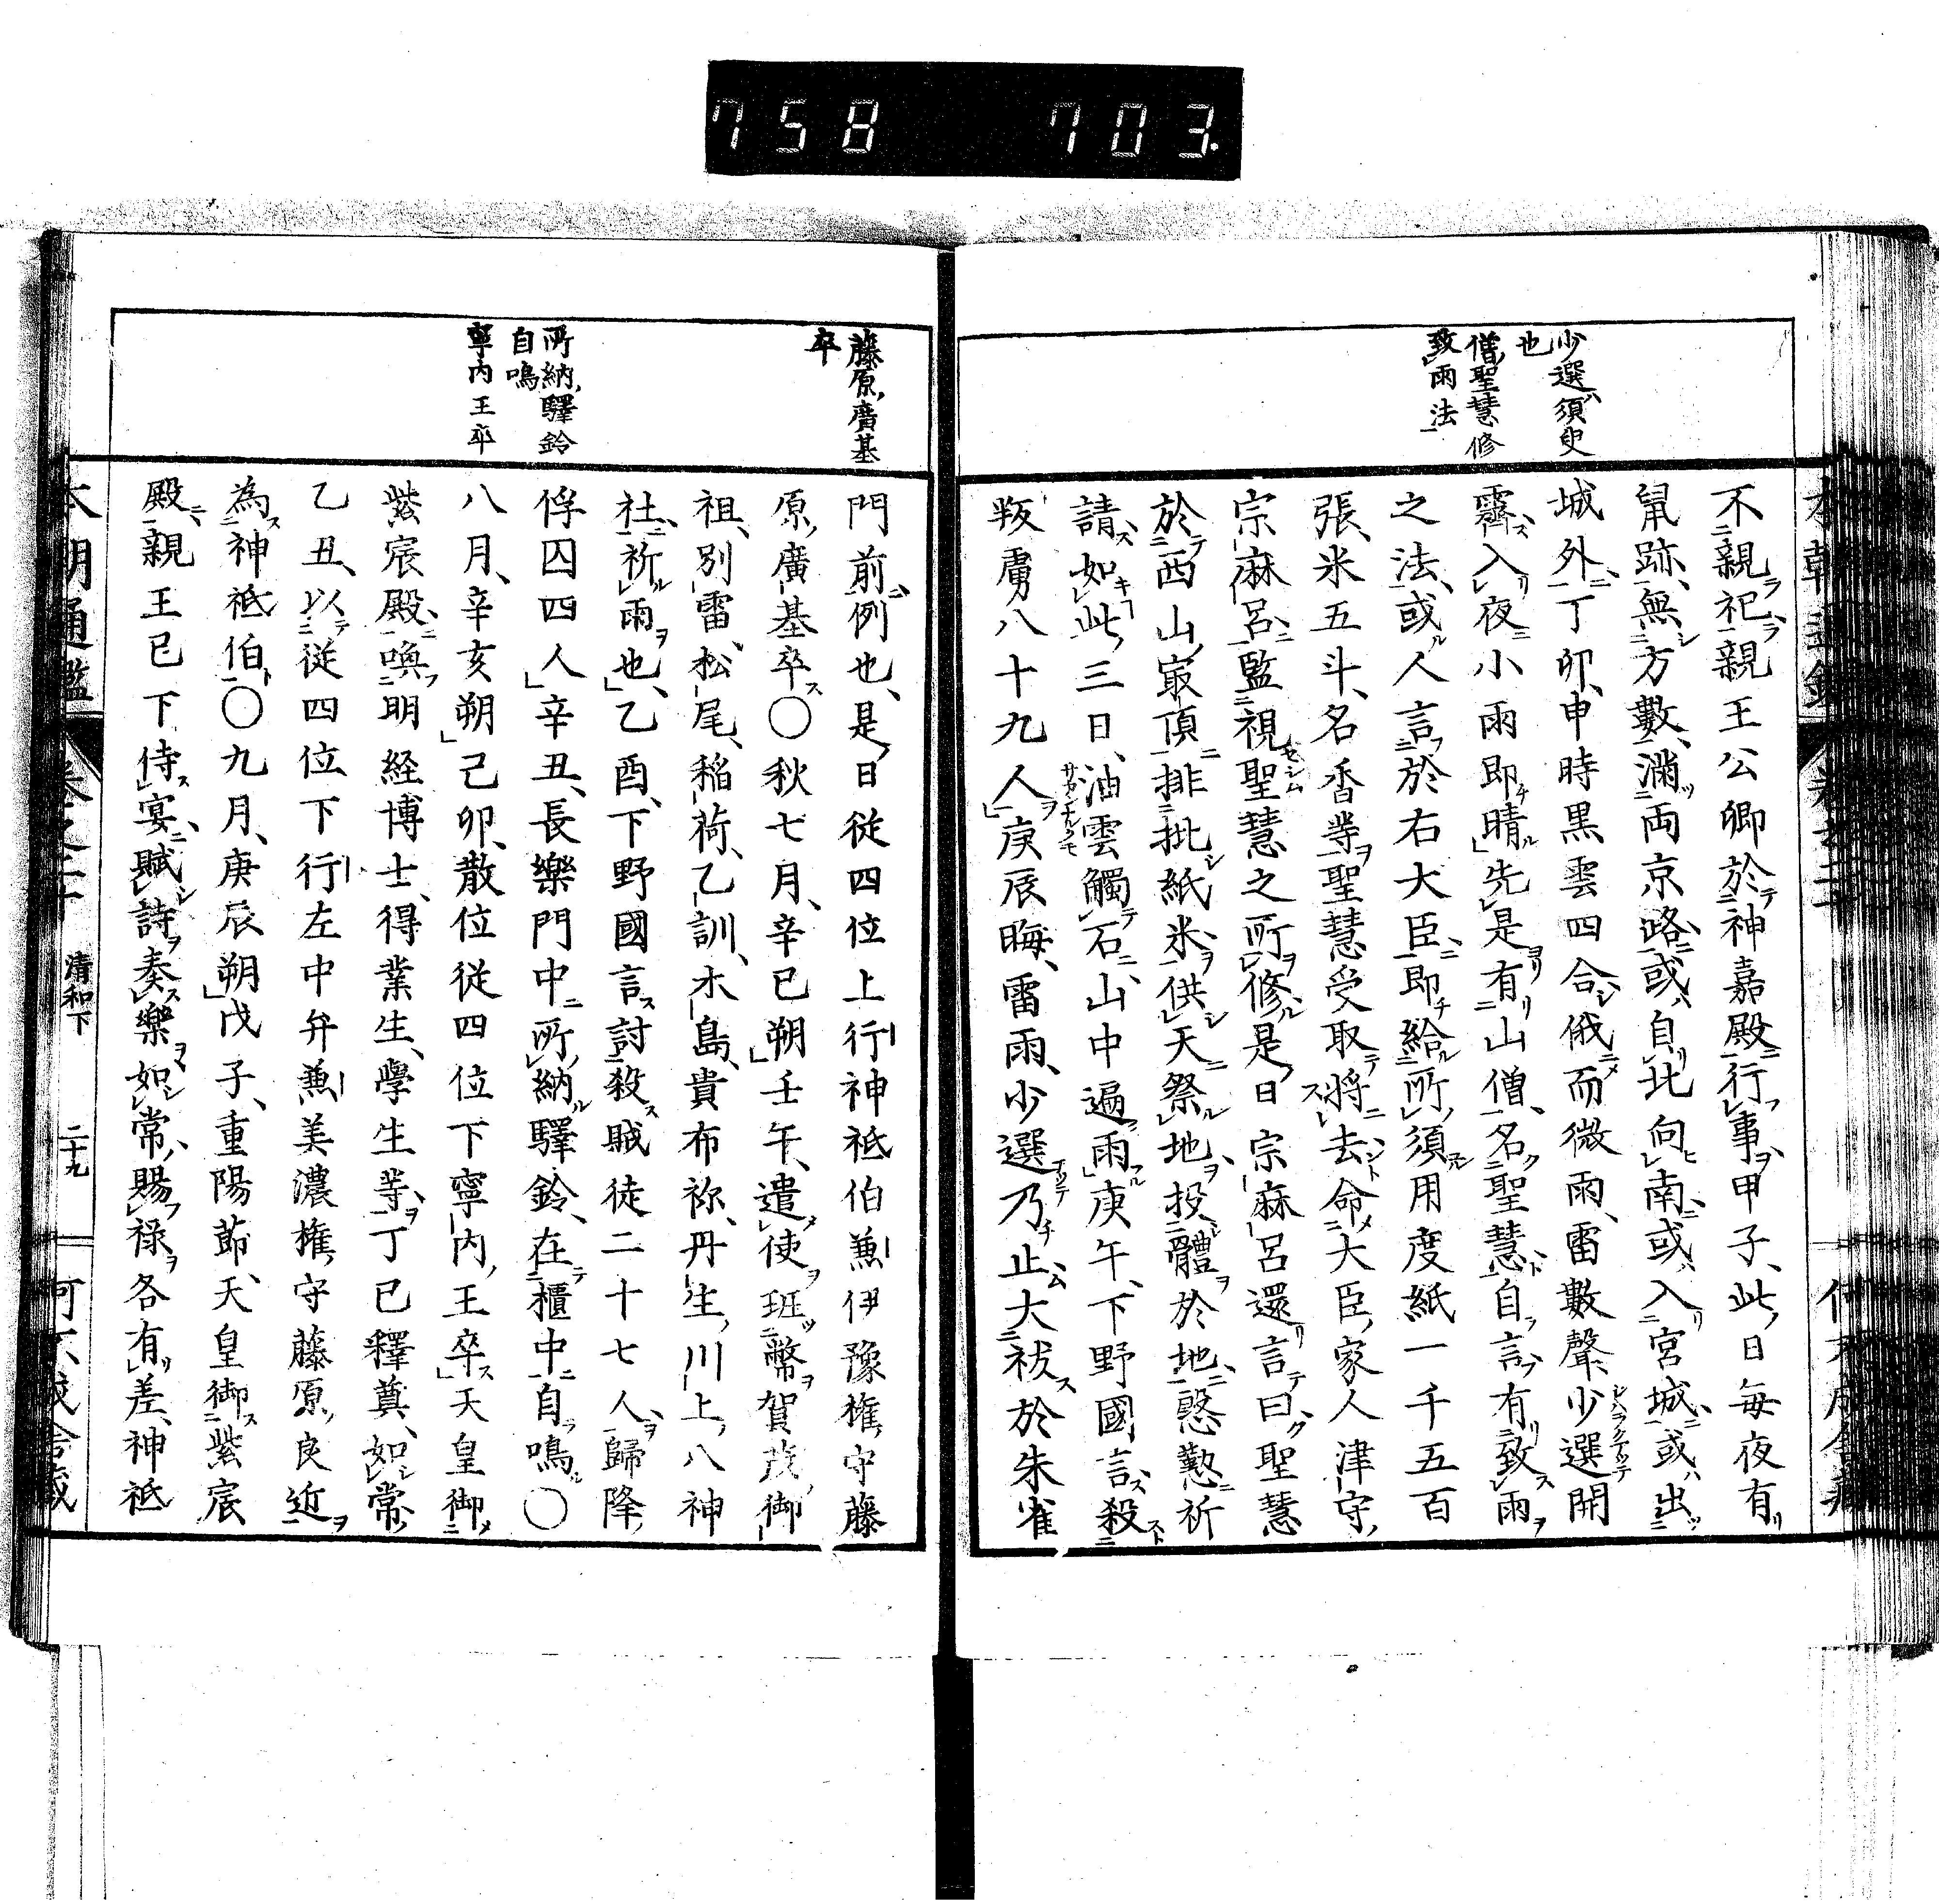 758 703.
少選須臾
也
僧聖慧修
致雨法
不親祀親王公卿於神嘉殿行事甲子此日毎夜有
鼠跡無方數滿両京路或自北向南或入宮城或出
城外丁卯申時黒雲四合俄而微雨雷數聲少選開
霽入夜小雨即晴先是有山僧名聖慧自言有致雨
之法或人言於右大臣即給所須用度紙一千五百
張米五斗名香等聖慧受取将去命大臣家人津守
宗麻呂監視聖慧之所修是日宗麻呂還言曰聖慧
於西山最頂排批紙米供天祭地投體於地慇懃祈
請如此三日油雲觸石山中遍雨庚午下野國言殺
叛虜八十九人庚辰晦雷雨少選乃止大祓於朱雀
藤原廣基
卒
所納驛鈴
自鳴
寧内王卒
門前例也是日従四位上行神祗伯兼伊豫権守藤
原廣基卒〇秋七月辛巳朔壬午遣使班幣賀茂御
祖別雷松尾稲荷乙訓木島貴布祢丹生川上八神
社祈雨也乙酉下野國言討殺賊徒二十七人歸降
俘囚四人辛丑長樂門中所納驛鈴在櫃中自鳴〇
八月辛亥朔己卯散位従四位下寧内王卒天皇御
紫宸殿喚明経博士得業生學生等丁巳釋奠如常
乙丑以従四位下行左中弁兼美濃権守藤原良近
為神祗伯〇九月庚辰朔戊子重陽節天皇御紫宸
殿親王已下侍宴賦詩奏樂如常賜禄各有差神祗
本朝通鑑 巻之二十 清和下 二十九